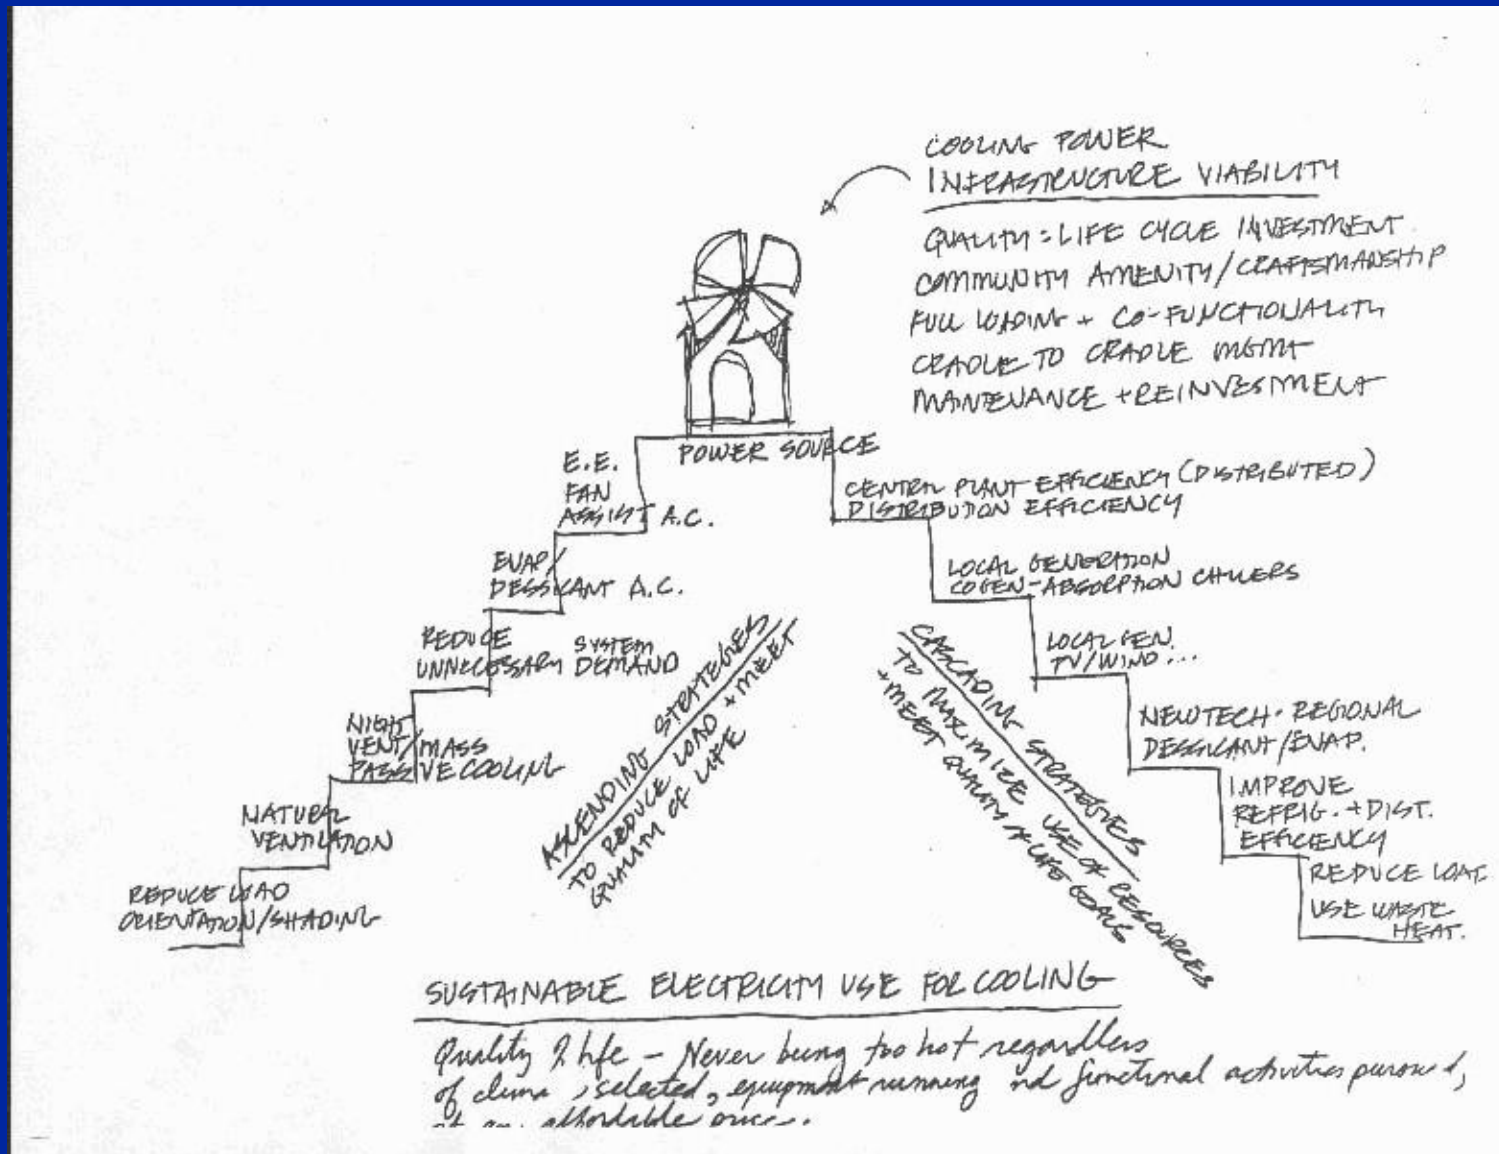 COOLING POWER
INFRASTRUCTURE VIABILITY
QUALITY = LIFE CYCLE INVESTMENT
COMMUNITY AMENITY/CRAFTSMANSHIP
FULL LOADING + CO-FUNCTIONALITY
CRADLE TO CRADLE MGMT
MAINTENANCE + REINVESTMENT
POWER SOURCE
E.E.
FAN
ASSIST A.C.
EVAP/
DESSICANT A.C.
REDUCE
UNNECESSARY SYSTEM DEMAND
NIGHT
VENT/MASS
PASSIVE COOLING
NATURAL
VENTILATION
REDUCE LOAD
ORIENTATION/SHADING
ASCENDING STRATEGIES
TO REDUCE LOAD + MEET
QUALITY OF LIFE
CENTRAL PLANT EFFICIENCY (DISTRIBUTED)
DISTRIBUTION EFFICIENCY
LOCAL GENERATION
COGEN-ABSORPTION CHILLERS
LOCAL GEN.
PV/WIND...
NEW TECH - REGIONAL
DESSICANT/EVAP.
IMPROVE
REFRIG. + DIST.
EFFICIENCY
REDUCE LOAD
USE WASTE
HEAT.
CASCADING STRATEGIES
TO MAXIMIZE USE OF RESOURCES
+ MEET QUALITY OF LIFE GOALS
SUSTAINABLE ELECTRICITY USE FOR COOLING
Quality of life - Never being too hot regardless
of selected, equipment running functional activities pursued,
affordable